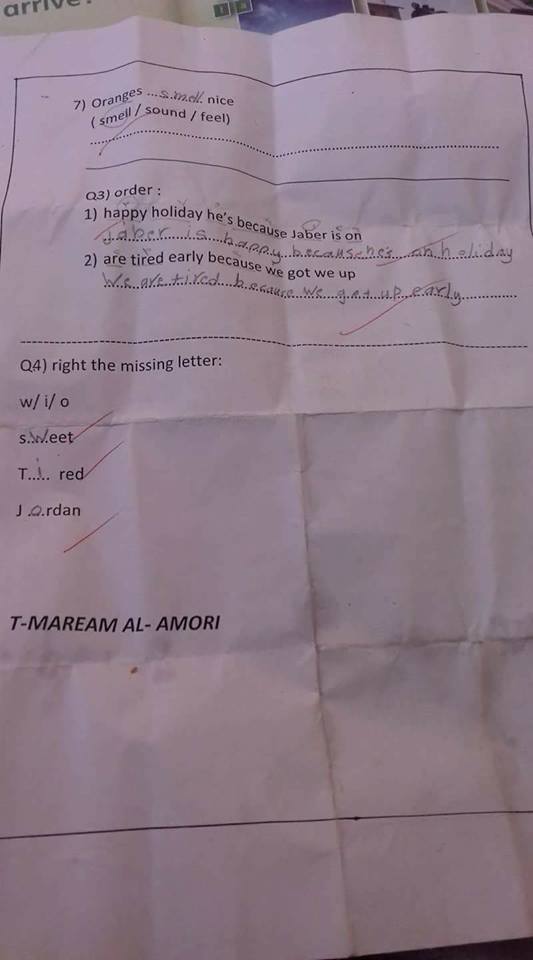 arrive.
7) Oranges ...smell. nice
( smell / sound / feel)
Q3) order :
1) happy holiday he's because Jaber is on
Jaber is happy because he's on holiday
2) are tired early because we got we up
We are tired because we get up early
Q4) right the missing letter:
w/ i/ o
s.w.eet
T..i.. red
J .o.rdan
T-MAREAM AL- AMORI